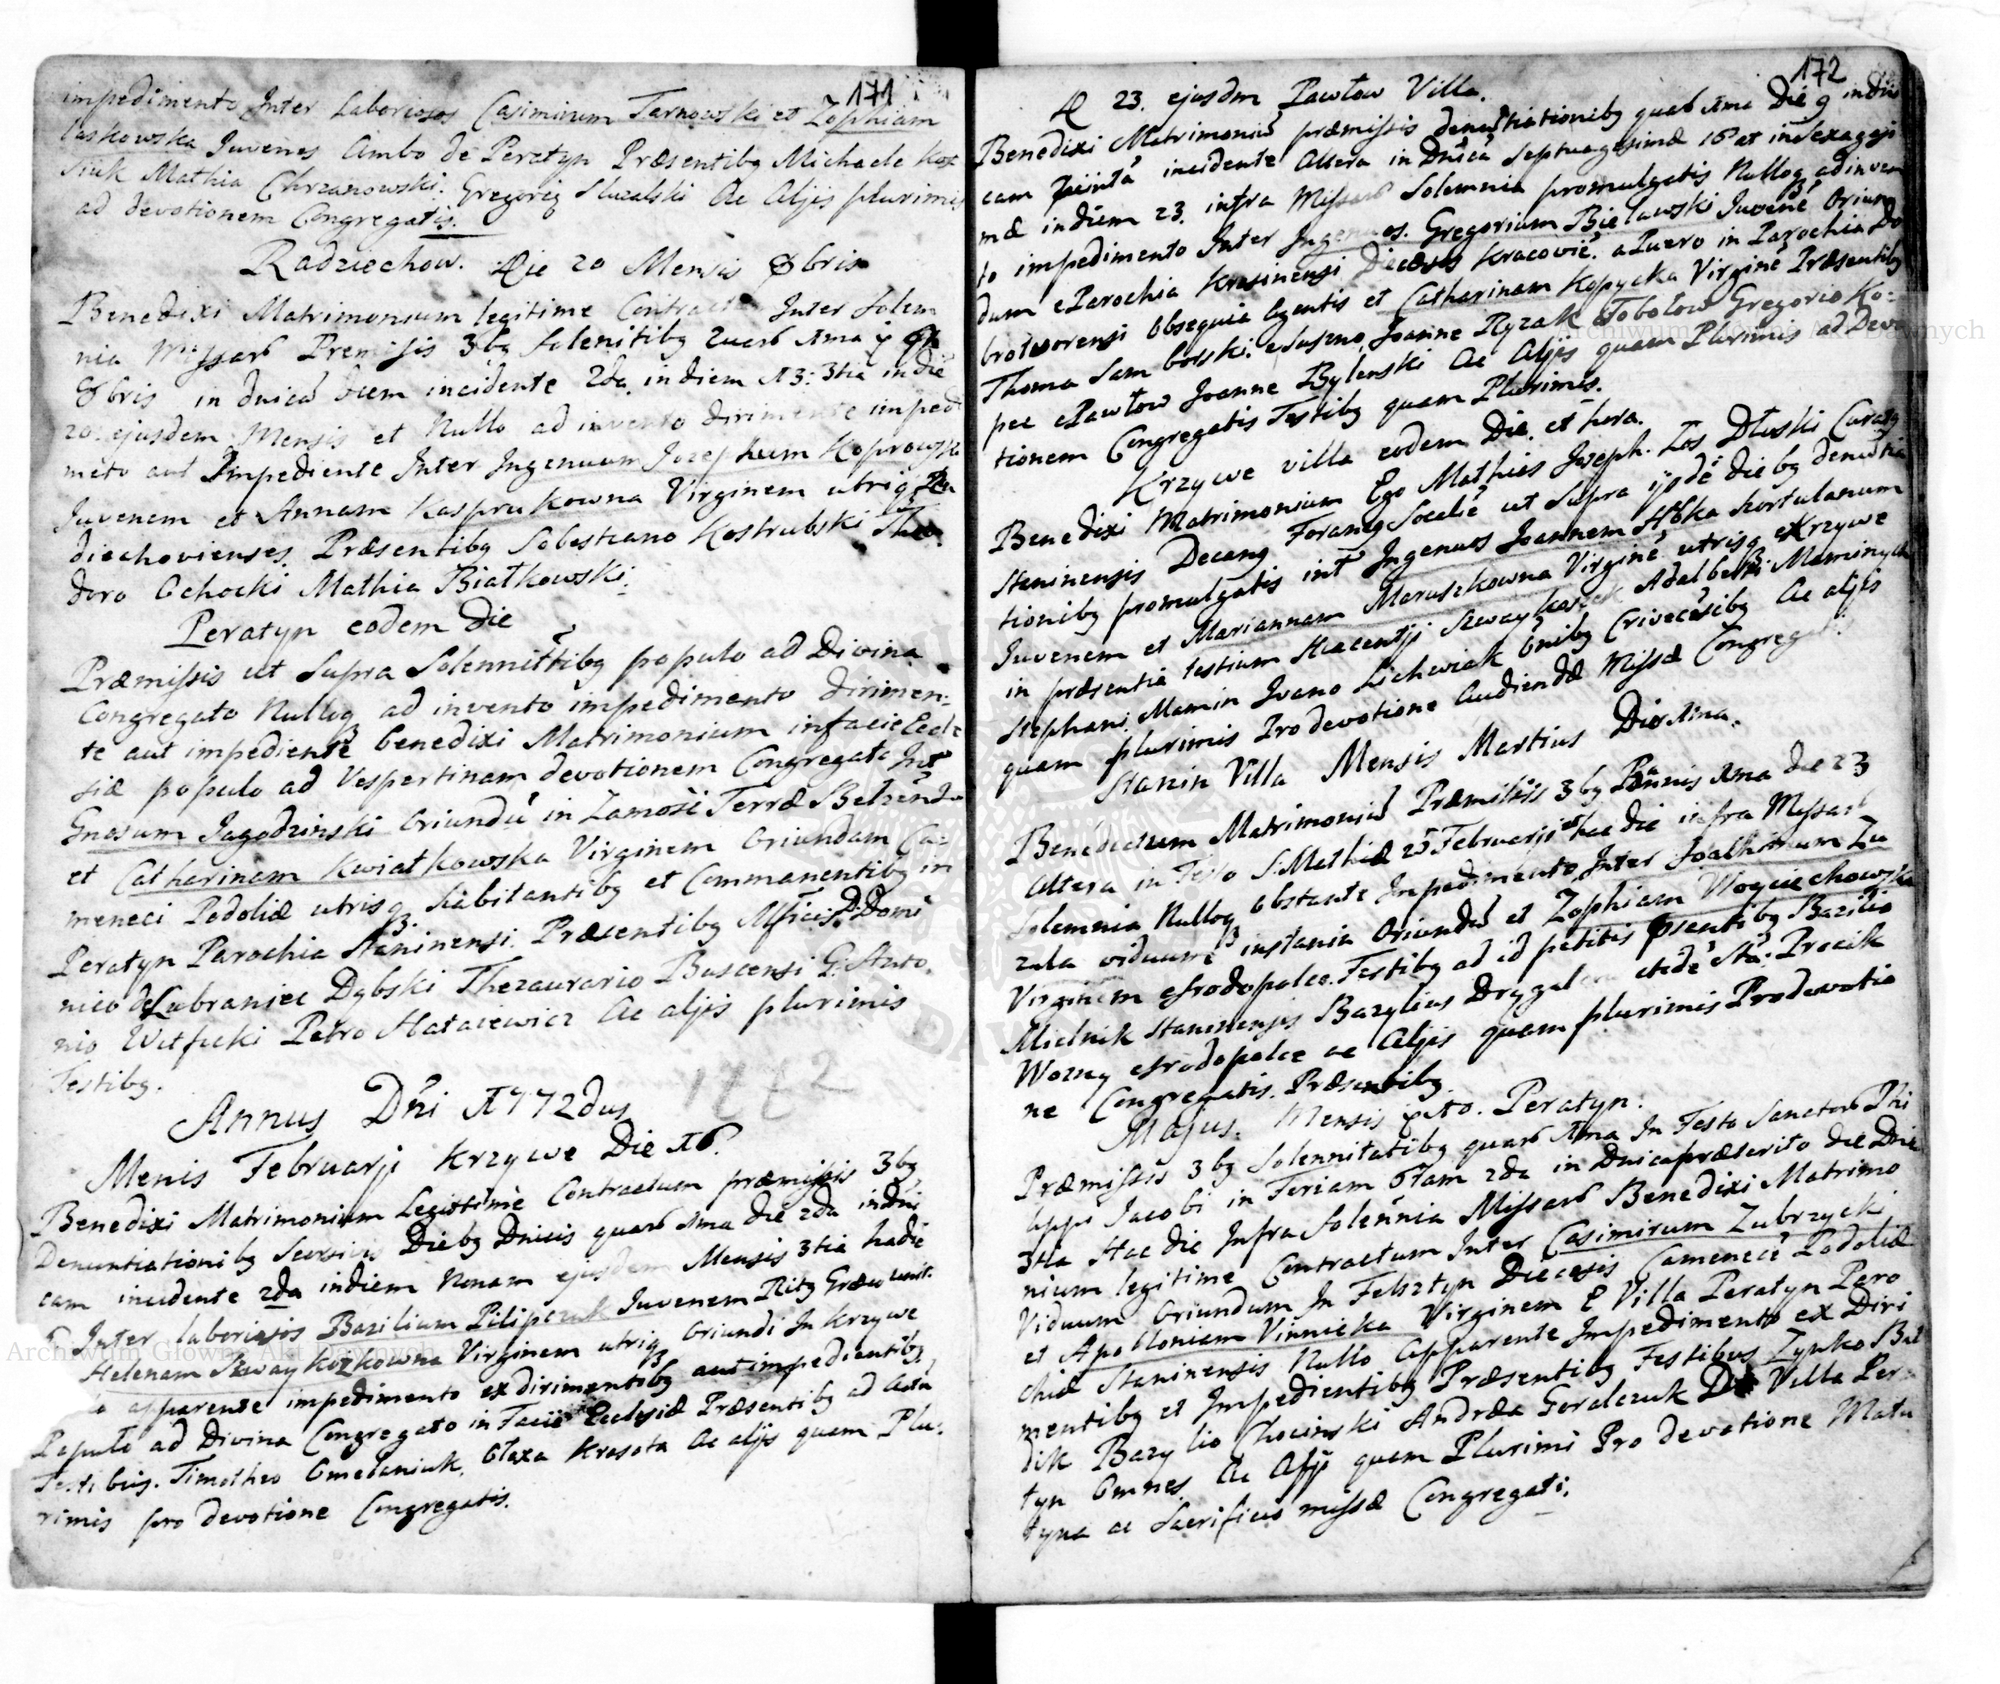 171
impedimento Inter Laboriosos Casimirum Tarnowski et Zophiam
Laskowska Juvenes Ambo de Peratyn Præsentibq Michaele
Mathia Chrzanowski. Gregoriq Sluzalski Ac Alijs plurimis
ad devotionem Congregatis.
Radziechow. Die 20 Mensis 8bris
Benedixi Matrimonium legitime Inter Solem
nia Missar Premissis 3bq Solenitibq quar 1ma
8bris in dnica incidente 2da in diem 13: 3tia in die
20: ejusdem Mensis et Nullo ad invento dirimente imped
meto aut Impediente Inter Ingenuum Josephum Koprowski
Juvenem et Annam Kasprukowna Virginem utriq Ra
diechovienses. Præsentibq Sebestiano Kostrubski
doro Ochocki Mathia Białkowski.
Peratyn eodem Die
Præmissis ut Supra Solennittibq populo ad Divina
Congregato Nulloq ad invento impedimento dirimen-
te aut impediente benedixi Matrimonium in facie Eccle
siæ populo ad Vespertinam devotionem Congregato Int
Gnosum Jagodzinski Oriundu in Zamosci Terræ
et Catharinam Kwiatkowska Virginem Oriundam Ca-
meneci Podoliæ utrisq habitantibq et Commanentibq in
Peratyn Parochia Staninensi. Præsentibq Domi
nico de Lubraniec Dąbski Thezaurario Buscensi G: Anto.
nio Witficki Petro Hatacewicz Ac alijs plurimis
Testibq.
1772
Annus Dni 1772dus
Menis Februarji Krzywe Die 16.
Benedixi Matrimonium Legittime Contractum præmissis 3bq
Denuntiationibq Diebq Dnicis quar 1ma die 2da in Dni
cam incidente 2da in diem Nonam ejusdem Mensis 3tia hadie
Inter laboriosos Bazilium Pilipczuk Juvenem Ritq Græc
Helenam Szwaykozkowna Virginem utriq Oriundi In Krzywe
apparente impedimento ex dirimentibq aut impedientibq
Populo ad Divina Congregato in Facie Ecclesiæ Præsentibq ad Acta
Testibus. Timotheo Omelaniuk, Olexa Krasota Ac alijs quam Plu-
rimis pro devotione Congregatis.
172
D 23. ejusdm Pawłow Villa.
Benedixi Matrimoniu præmissis denuntiationibq quar 1ma Die 9 in dni
cam incidente Altera in Dnica Septuagesimæ 16 et in Sexagesi
mæ in diem 23. infra Missar Solemnia promulgatis Nulloq ad inven
to impedimento Inter Ingenuos. Gregorium Bielawski Juvene Oriun
dum e Parochia Krosinensi Diecesis Kracovie. a Puero in Parochia Do
brotworensi Obsequia Agentis et Catharinam Kopycka Virgine Præsentibq
Thoma Samborski. e Suszno, Joanne Ryzak e Tobolow Gregorio Ko-
pec e Pawłow Joanne Bylenski Ac Alijs quam Plurimis ad Devo
tionem Congregatis Testibq quam Plurimis.
Krzywe villa eodem Die. et hora.
Benedixi Matrimonium Ego Mathias Joseph. Łos Dłuski Curatq
Staninensis Decang Foraneq Socalie ut Supra ijsde diebq denutia
tionibq promulgatis int Ingenuos Joannem Hortulanum
Juvenem et Mariannam Maruszkowna Virgine utrisq e Krzywe
in præsentia testium Hiacentji Adalberti Maminych
Stephani Mamin Ivano Lichwiak Omibq Ac alijs
quam plurimis Pro devotione Audiendæ Missæ Congregati
Stanin Villa Mensis Martius Die 1ma.
Benedictum Matrimoniu Præmissis 3bq Bannis 1ma die 23
Altera in Festo S. Mathiæ 25 Februarji et hac die infra Missar
Solemnia Nulloq obstante Impedimento, Inter Joachimum Za
zula viduum in Stanin Oriundu et Zophiam Woyciechowska
Virginem e Srodopolce. Testibq ad id petitis Psentibq Bazilio
Mielnik Staninensis Bazylius Drygala Procik
Wozny e Srodopolce ac Alijs quam plurimis Pro devotio
ne Congregatis. Præsentibq
Majus. Mensis Peratyn.
Præmissis 3bq Solennitatibq quar 1ma In Festo Sanctor Phi
Appi Jacobi in Feriam 6tam 2da in Dnica præterito die Dnie
3tia Hac die Infra Solennia Missar Benedixi Matrimo
nium legitime Contractum Inter Casimirum Zubrzycki
Viduum Oriundum In Felsztyn Diecesis Cameneci Podoliæ
et Apolloniam Vinnicka Virginem E Villa Peratyn Paro
chiæ Staninensis Nullo Apparente Impedimento ex Diri
mentibq et Impedientibq Præsentibq Testibus Zynko Bul
dik Bazylio Chocinski Andræa Geralczuk De Villa Per-
tyn Omnes. Ac Alji quam Plurimi Pro devotione Matu
tyna ac Sacrificio missæ Congregati.
Archiwum Główne Akt Dawnych
Archiwum Główne Akt Dawnych